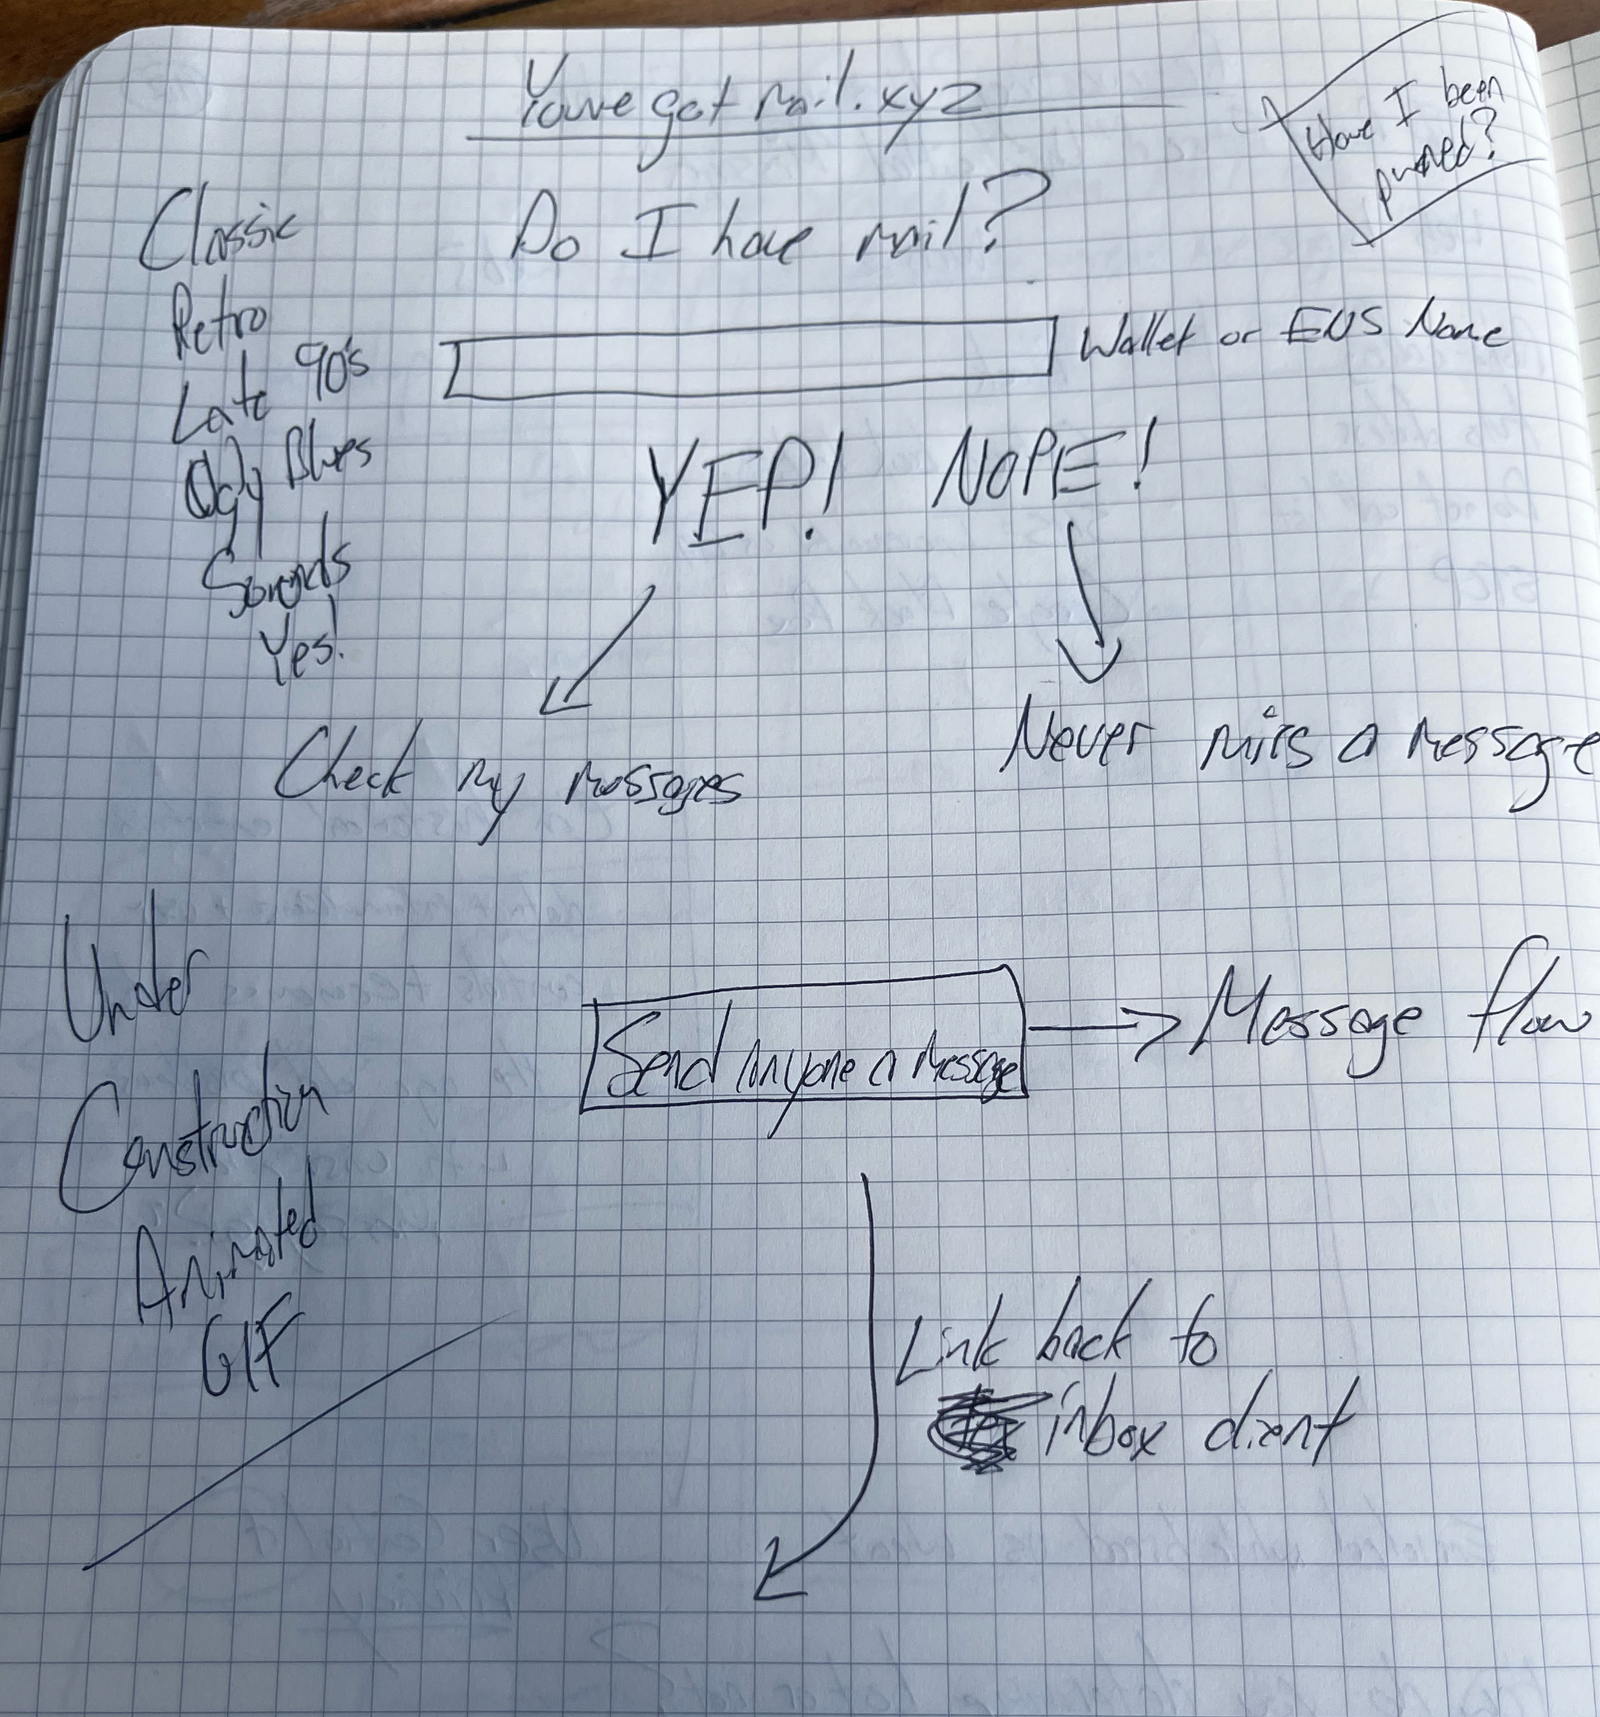 Youvegotmail.xyz
Have I been
pwned?
Do I have mail?
Classic
Retro
Late 90's
Ugly Blues
Sounds
Yes!
Wallet or ENS Name
YEP! NOPE!
Check my messages
Never miss a message
Under
Construction
Animated
GIF
Send anyone a message
Message flow
Link back to
inbox client